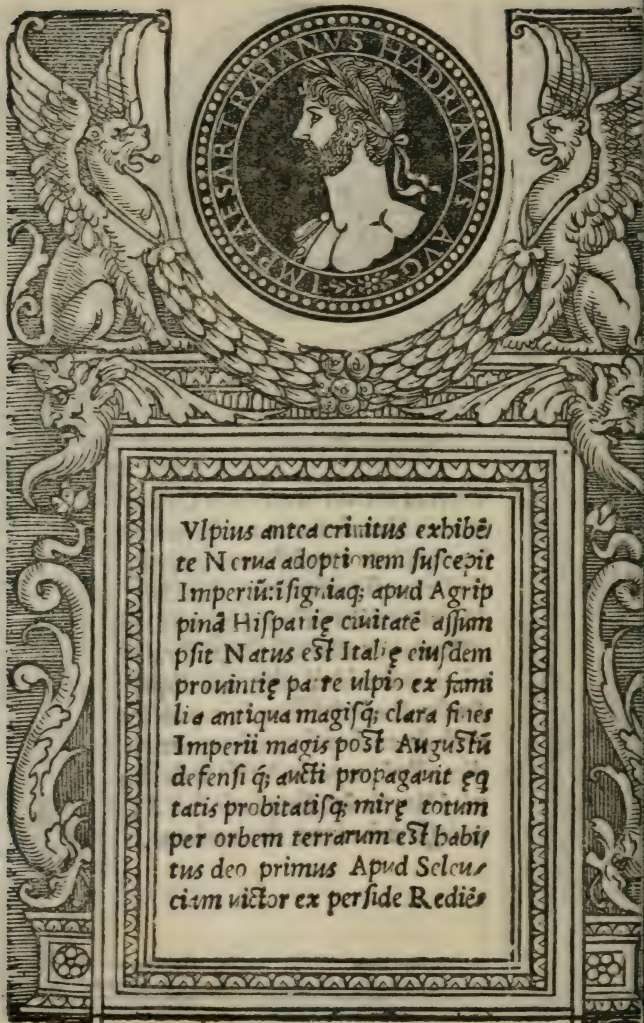 IMP·CAESAR TRAIANVS HADRIANVS AVG
Vlpius antea crinitus exhibē/
te Nerua adoptionem ſuſcepit
Imperiū:īſigniaq; apud Agrip
pinā Hiſpanię ciuitatē aſſum
pſit Natus eſt Italię eiuſdem
prouintię patre ulpio ex fami
lia antiqua magiſq̃; clara fines
Imperii magis poſt Auguſtū
defenſi q̃; aucti propagauit ęq
tatis probitatiſq; mirę totum
per orbem terrarum eſt habi/
tus deo primus Apud Seleu/
ciam uictor ex perſide Rediēs